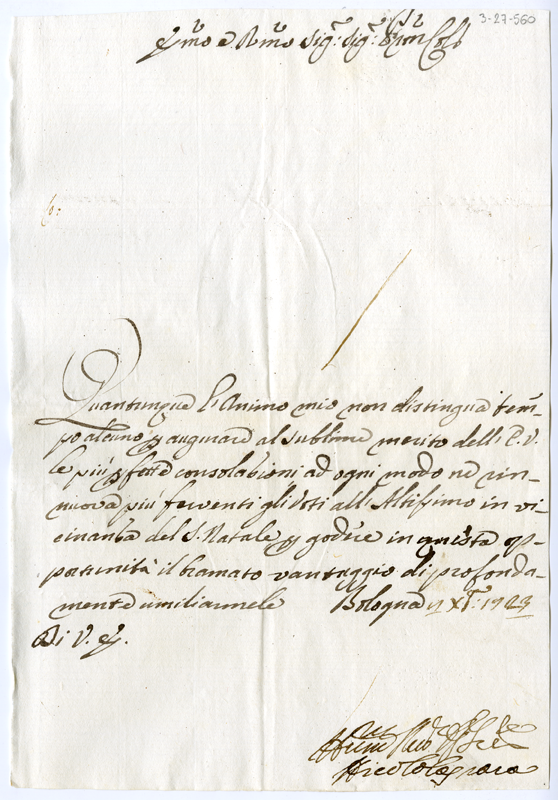 3-27-560
Emo e Rmo Sig.r Sig.r Pron Col.
Quantunque l'Animo mio non distingua tem-
po alcuno p augurare al sublime merito dell' E. V.
le più pfette consolazioni ad ogni modo ne rin-
nuova più ferventi gli voti all' Altissimo in vi-
cinanza del S. Natale p godere in questa op-
portunità il bramato vantaggio di profonda-
mente umiliarmele Bologna
Di V. E.